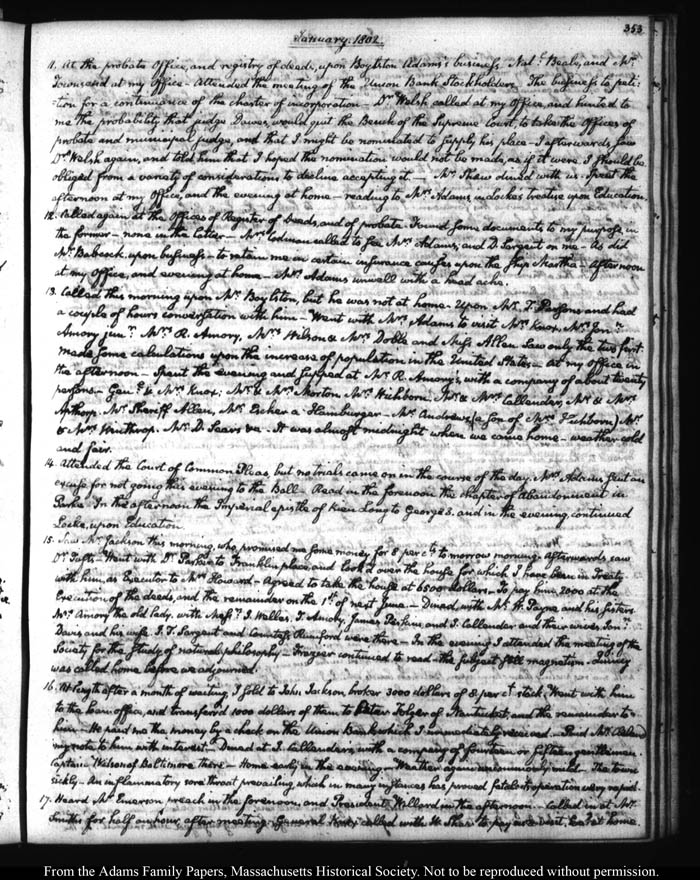 353
January. 1802.
11. At the probate Office, and registry of deeds, upon Boylston Adams's business. Nat.l Beale, and Mr.
Townsend at my office - Attended the meeting of the Union Bank Stockholders - The business to peti=
=tion for a continuance of the charter of incorporation - Dr. Welsh called at my Office, and hinted to
me the probability that judge Dawes, would quit the Bench of the Supreme Court, to take the Offices of
probate and municipal judge, and that I might be nominated to supply his place - I afterwards saw
Dr. Welsh again, and told him that I hoped the nomination would not be made, as if it were I should be
obliged from a variety of considerations to decline accepting it. - Mr. Shaw dined with us - Spent the
afternoon at my Office, and the evening at home - reading to Mrs. Adams, in Locke's treatise upon Education.
12. Called again at the Offices of Register of Deeds, and of probate. Found some documents to my purpose in
the former - none in the latter - Mrs. Codman called to see Mrs. Adams, and D. Sargent on me - As did
Mr. Babcock, upon business - to retain me in certain insurance causes upon the ship Martha - Afternoon
at my Office, and evening at home - Mrs. Adams unwell with a head ache.
13. Called this morning upon Mr. Boylston, but he was not at home. Upon Mr. T. Parsons and had
a couple of hours conversation with him - Went with Mrs. Adams to visit Mrs. Knox, Mrs. Jon.n
Amory junr. Mrs. R. Amory, Mrs. Wilson & Mrs. Doble and Miss Allen. Saw only the two first
made some calculations upon the increase of population in the United States - At my Office in
the afternoon - Spent the evening and supped at Mr. R. Amory's, with a company of about twenty
persons - Genl. & Mrs. Knox; Mr. & Mrs. Morton, Mr. Hichborn, Mr. & Mrs. Callender, Mr. & Mrs.
Apthorp, Mr. Sheriff Allen, Mr. Escher a Hamburger - Mr. Andrews (a son of Mrs. Hichborn) Mr.
& Mrs. Winthrop. Mr. D. Sears &c - It was almost midnight when we came home - weather cold
and fair.
14. Attended the Court of Common Pleas, but no trials came on in the course of the day. Mrs. Adams sent an
excuse for not going this evening to the Ball - Read in the forenoon the chapter of abandonment in
Parke - In the afternoon the Imperial epistle of Kien Long to George 3. and in the evening, continued
Locke, upon Education.
15. Saw Mr. Jackson this morning, who promised me some money for 8 per cts. to morrow morning - Afterwards saw
Dr. Tufts - Went with Dr. Parker to Franklin place, and look'd over the house for which I have been in Treaty
with him, as Executor to Mrs. Howard - Agreed to take the house at 6500 dollars - To pay him 2000 at the
Execution of the deeds, and the remainder on the 1st. of next June - Dined at Mr. W. Payne and his sisters
Mrs. Amory the old lady, with Messrs. S. Welles, T. Amory, James Perkins, and J. Callender and their wives. Jon.n
Davis and his wife. J. T. Sargent and Countess Rumford were there - In the evening I attended the meeting of the
Society for the study of natural philosophy - Frazier continued to read - the subject still magnetism - Quincy
was called home before we adjourned.
16. At length after a month of waiting, I sold to John Jackson, broker 3000 dollars of 8 per ct. stock. Went with him
to the loan office, and transferr'd 1000 dollars of them to Peter Folger of Nantucket, and the remainder to
him - He paid me the money by a check on the Union Bank which I immediately received - Paid Mr.
my note to him with interest. Dined at J. Callender's, with a company of fourteen or fifteen gentlemen.
Captain Wilson of Baltimore there - Home early in the evening - Weather again uncommonly mild - The town
sickly - An inflammatory sore throat prevailing, which in many instances has proved fatal - its operation is very rapid.
17. Heard Mr. Emerson preach in the forenoon, and President Willard in the afternoon - Called in at Mr.
Smith's for half an hour, after meeting - General Knox called with H. Shaw to pay us a visit, at home.
From the Adams Family Papers, Massachusetts Historical Society. Not to be reproduced without permission.